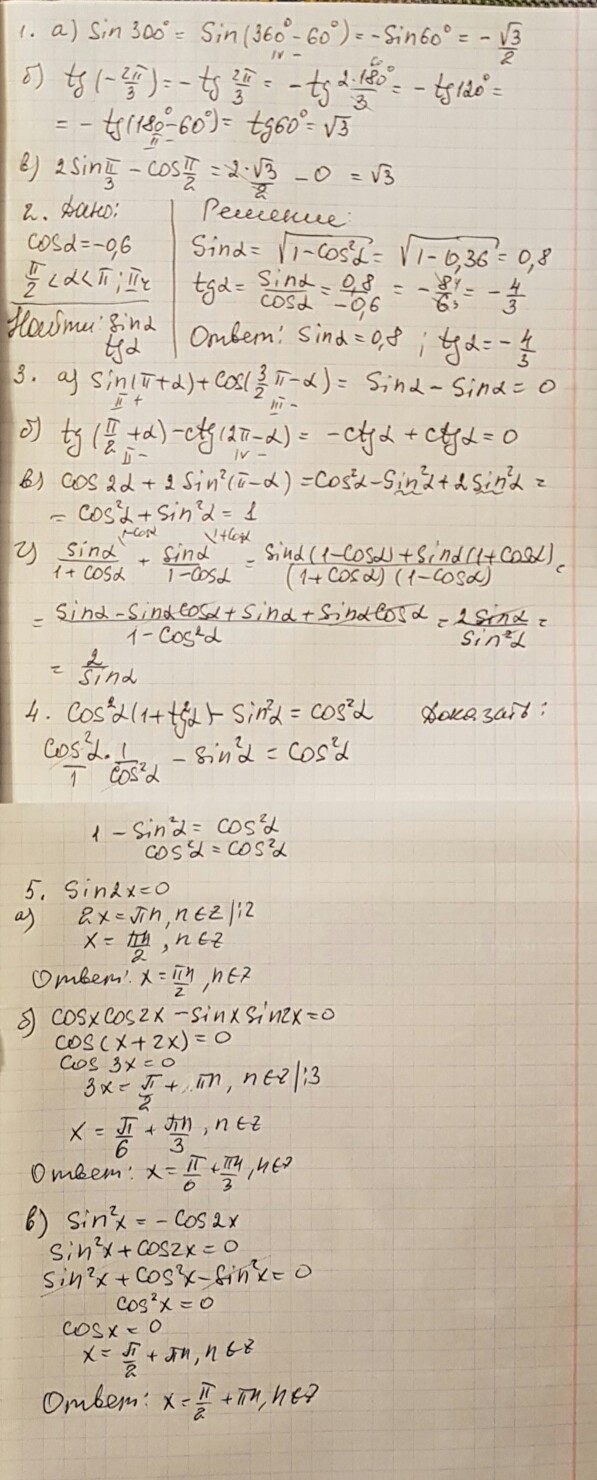 1. а) Sin 300° = Sin(360° - 60°) = -Sin60° = - √3/2
IV -
б) tg(-2π/3) = - tg 2π/3 = - tg 2·180°/3 = - tg120° =
60
= - tg(180°-60°) = tg60° = √3
II -
в) 2Sin π/3 - cos π/2 = 2·√3/2 - 0 = √3
2. Дано: Решение:
cosα = -0,6 Sinα = √1-Cos²α = √1-0,36 = 0,8
π/2 < α < π ; II ч tgα = Sinα/Cosα = 0,8/-0,6 = - 8 4/6 3 = - 4/3
Найти: Sinα
tgα Ответ: Sinα = 0,8 ; tgα = - 4/3
3. а) Sin(π+α) + Cos(3/2 π - α) = Sinα - Sinα = 0
II + III -
б) tg(π/2 + α) - ctg(2π - α) = - ctgα + ctgα = 0
II - IV -
в) cos2α + 2Sin²(π-α) = Cos²α - Sin²α + 2Sin²α =
= Cos²α + Sin²α = 1
г) Sinα \1-cosα/1+cosα + Sinα \1+cosα/1-cosα = Sinα(1-Cosα) + Sinα(1+Cosα)/(1+Cosα)(1-Cosα) =
= Sinα - SinαCosα + Sinα + SinαCosα/1-Cos²α = 2Sinα/Sin²α =
= 2/Sinα
4. Cos²α(1+tg²α) - Sin²α = Cos²α Доказать:
Cos²α/1 · 1/Cos²α - Sin²α = Cos²α
1 - Sin²α = Cos²α
cos²α = cos²α
5. Sin2x=0
а) 2x = πn, n∈Z |:2
x = πn/2, n∈Z
Ответ: x = πn/2, n∈Z
б) cosx cos2x - sinx sin2x = 0
cos(x + 2x) = 0
cos 3x = 0
3x = π/2 + πn, n∈Z |:3
x = π/6 + πn/3, n∈Z
Ответ: x = π/6 + πn/3, n∈Z
в) Sin²x = - Cos2x
Sin²x + Cos2x = 0
Sin²x + Cos²x - Sin²x = 0
Cos²x = 0
cosx = 0
x = π/2 + πn, n∈Z
Ответ: x = π/2 + πn, n∈Z